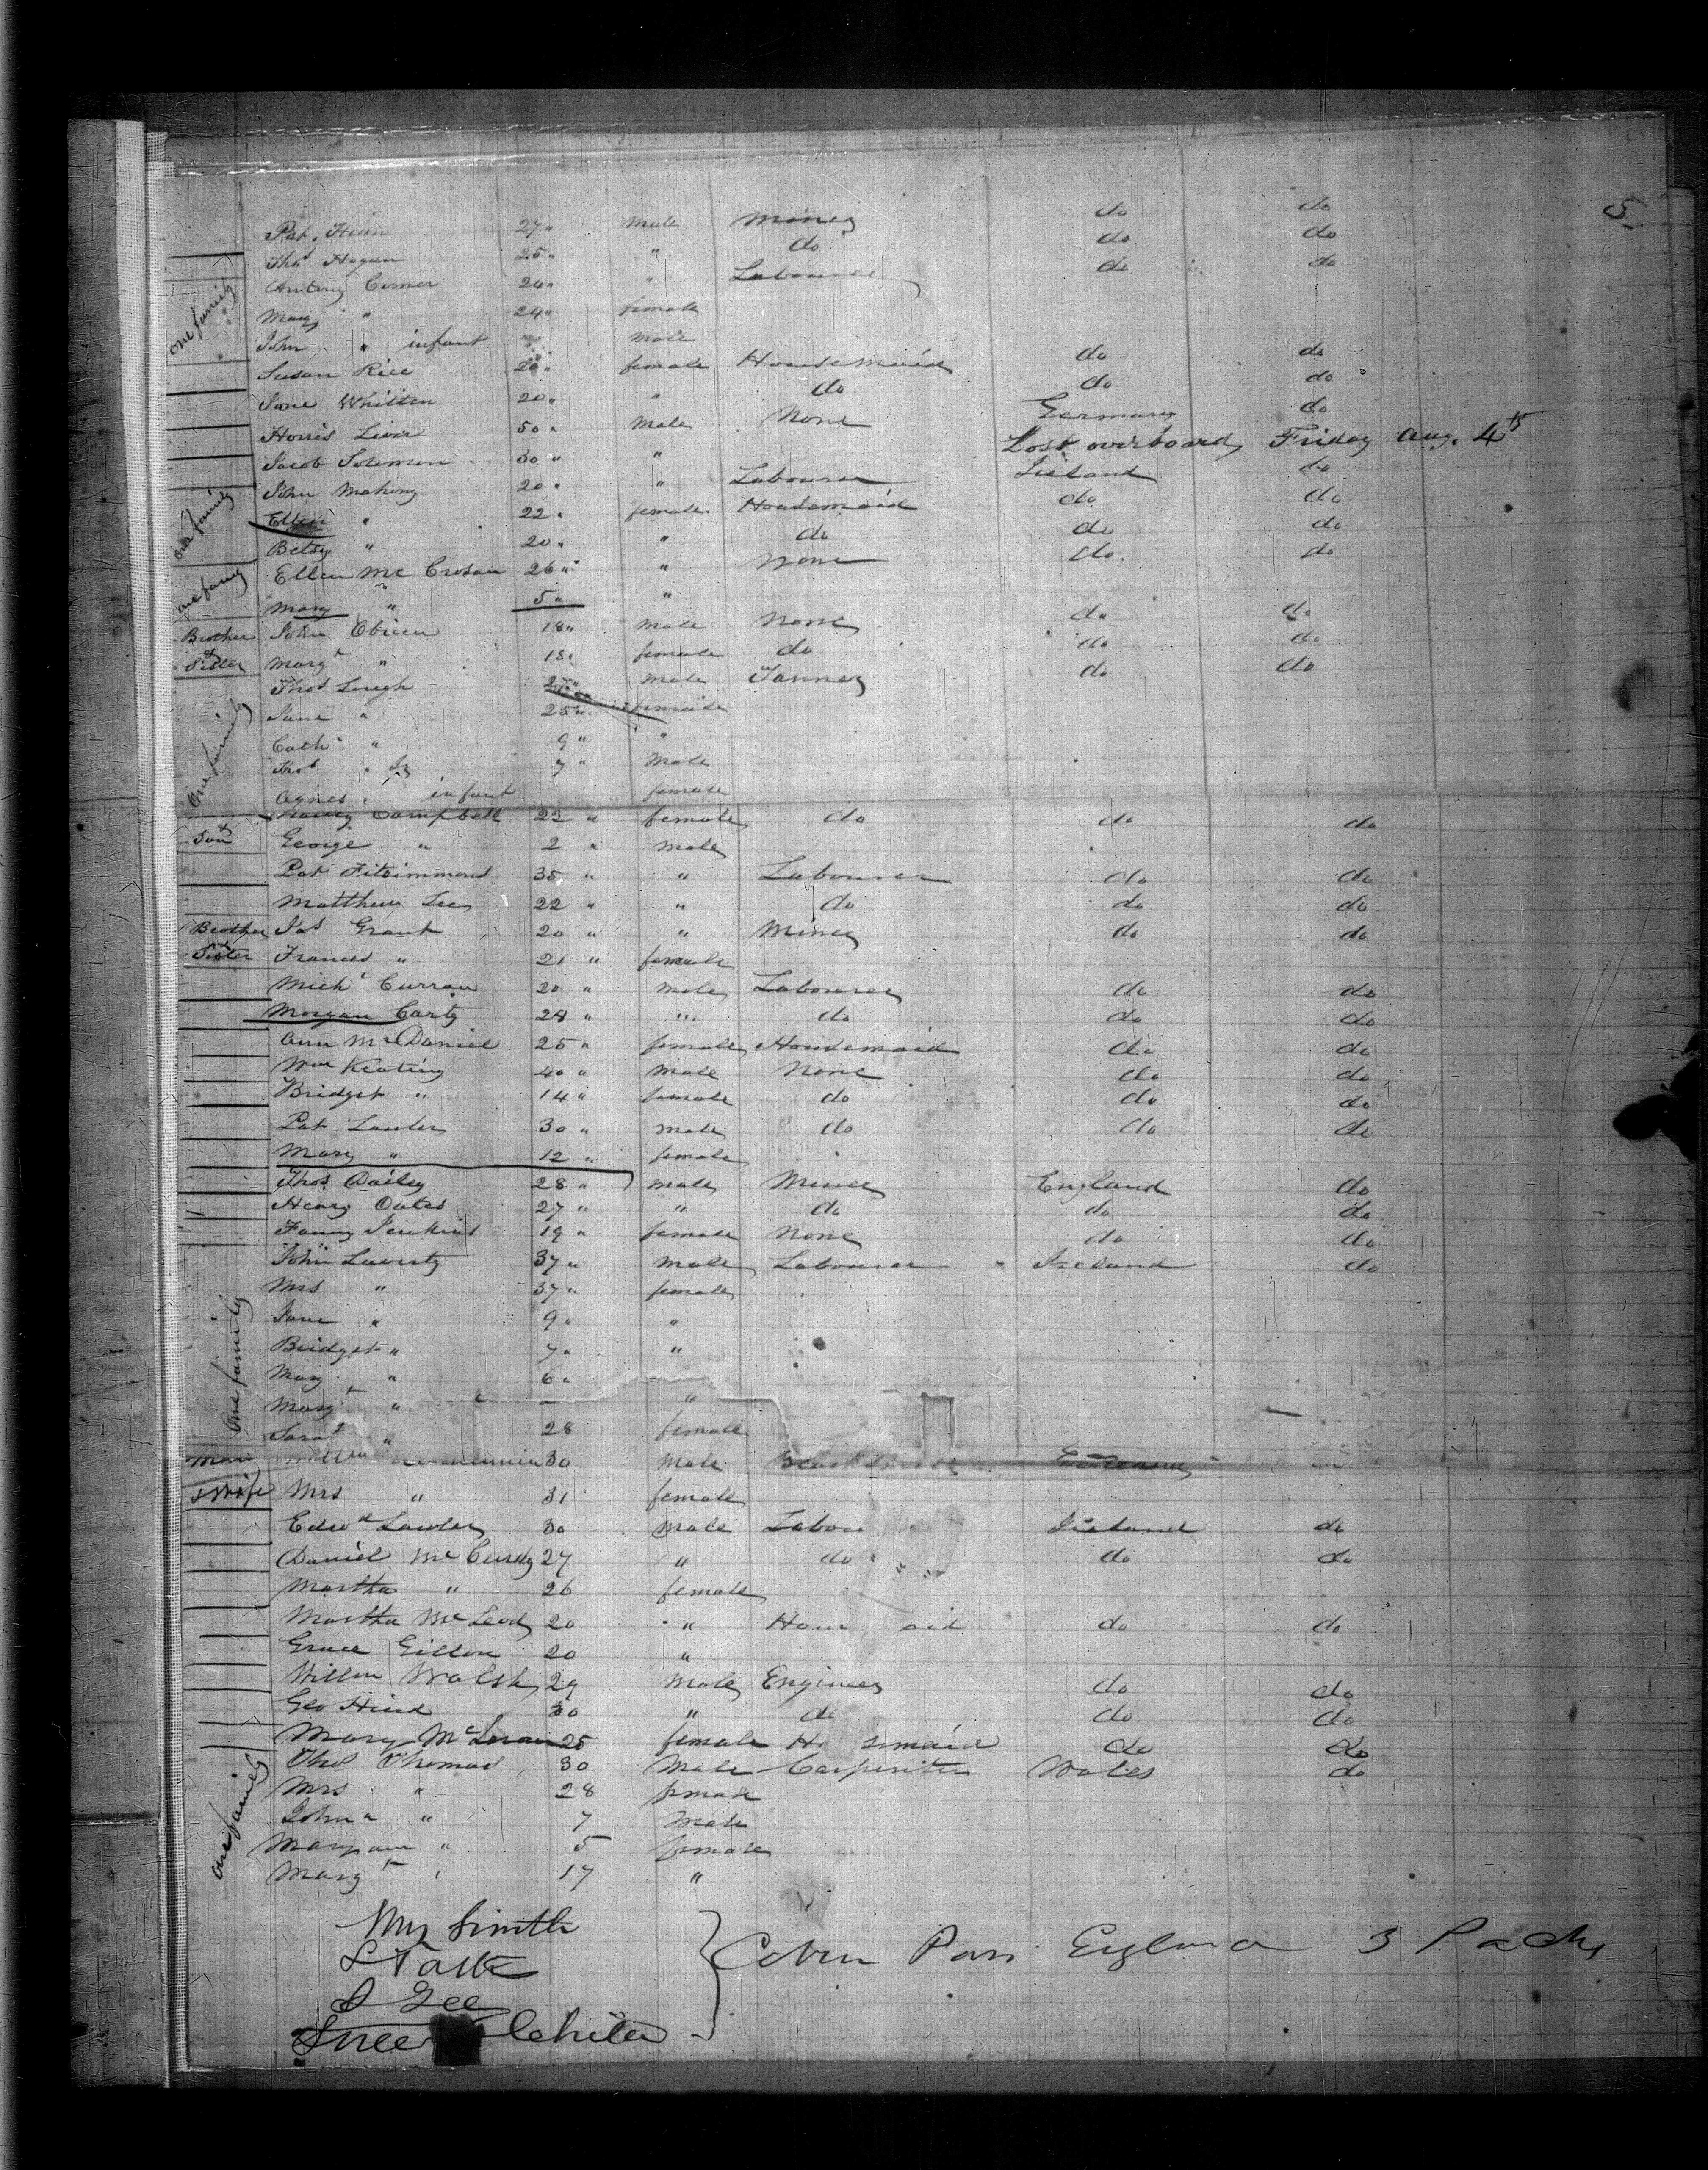 5
Pat. 27 " male Miner do do
Thos Hogan 25 " " do do do
Antony Comer 24 " " Labourer do do
one family
Mary " 24 " female
John " infant male
Susan Rice 20 " female Housemaid do do
Jane Whitten 20 " " do do do
Morris 50 " male None Germany do
Jacob Solomon 30 " " Lost overboard Friday Aug. 4th
John Mahony 20 " " Labourer Ireland do
one family
Ellen " 22 " female Housemaid do do
Betsy " 20 " " do do do
Ellen Mc Crosan 26 " " None do do
one family
Mary " 5 " "
Brother John Obrien 18 " male None do do
& Sister Margt " 18 " female do do do
Thos Lough 27 " male Tanner do do
Jane " 25 " female
one family
Cath " 9 " "
Thos " Jr 7 " male
Agnes " infant female
Nancy Campbell 22 " female do do do
& Son George " 2 " male
Pat Fitzimmons 35 " " Labourer do do
Matthew Lee 22 " " do do do
Brother Jas Grant 20 " " Miner do do
& Sister Frances " 21 " female
Michl Curran 20 " male Labourer do do
Morgan Carty 28 " " do do do
Ann McDaniel 25 " female Housemaid do do
Wm Keating 40 " male None do do
Bridget " 14 " female do do do
Pat Lawler 30 " male do do do
Mary " 12 " female
Thos Dailey 28 " male Miner England do
Henry Oates 27 " " do do do
Fanny Jenkins 19 " female None do do
John Laverty 37 " male Labourer " Ireland do
Mrs " 37 " female
Jane " 9 " "
Bridget " 7 " "
one family
Mary " 6 "
Margt " "
Sarah " 28 female
Man 30 male Blacksmith
& Wife Mrs " 31 female
Edwd Lawler 30 male Labou Ireland do
Daniel McCurdy 27 " do do do
Martha " 26 female
Martha McLeod 20 " Hou aid do do
Grace Gillon 20 "
Willm Walsh 29 male Engineer do do
Geo Hind 30 " do do do
Mary 25 female Ho semaid do do
Thomas 30 male Carpenter Wales do
Mrs " 28 female
John " " 7 male
one family
Maryann " 5 female
Margt " 17 "
Smith
} Cabin Pass England 3 Packs
Gee